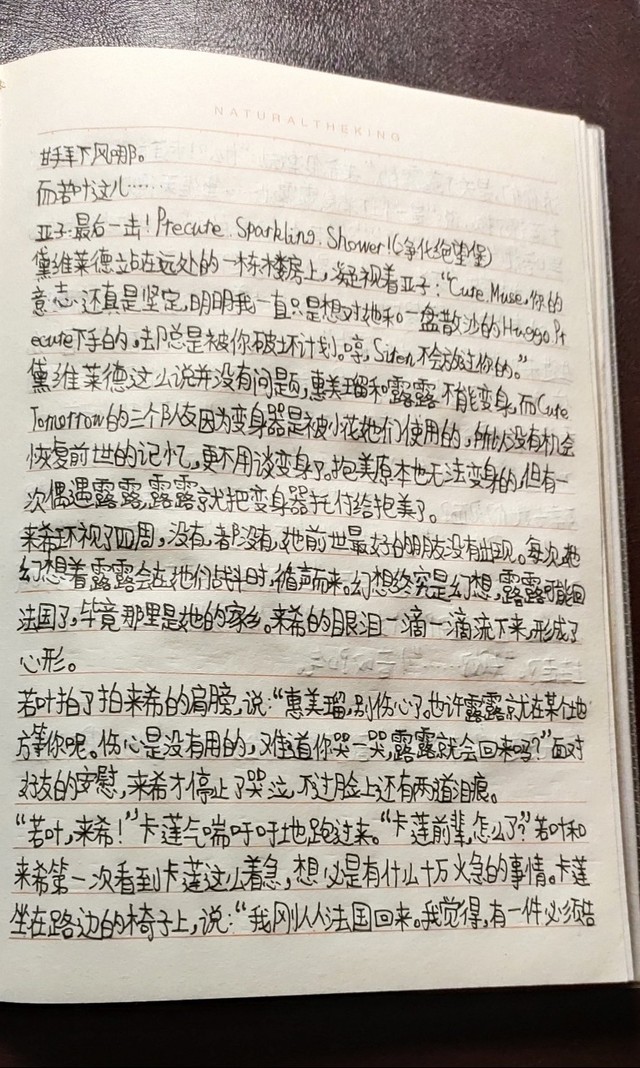 NATURALTHEKING
甘拜下风哪。
而若叶这儿……
亚子:最后一击！Precure.Sparkling.Shower!(净化绝望堡)
黛维莱德站在远处的一栋楼房上,凝视着亚子:“Cure.Muse,你的
意志还真是坚定,明明我一直只是想对她和一盘散沙的Huggo.Pr
ecure下手的,却总是被你破坏计划。哼,Siren不会放过你的。”
黛维莱德这么说并没有问题,惠美瑠和露露不能变身,而Cure
Tomorrow的三个队友因为变身器是被小花她们使用的,所以没有机会
恢复前世的记忆,更不用谈变身了。抱美原本也无法变身的,但有一
次偶遇露露,露露就把变身器托付给抱美了。
来希环视了四周,没有,都没有,她前世最好的朋友没有出现。每次,她
幻想着露露会在她们战斗时,循声而来。幻想终究是幻想,露露可能回
法国了,毕竟那里是她的家乡。来希的眼泪一滴一滴流下来,形成了
心形。
若叶拍了拍来希的肩膀,说:“惠美瑠,别伤心了。也许露露就在某个地
方等你呢。伤心是没有用的,难道你哭一哭,露露就会回来吗?”面对
好友的安慰,来希才停止了哭泣,不过脸上还有两道泪痕。
“若叶,来希!”卡莲气喘吁吁地跑过来。“卡莲前辈,怎么了?”若叶和
来希第一次看到卡莲这么着急,想必是有什么十万火急的事情。卡莲
坐在路边的椅子上,说:“我刚从法国回来。我觉得,有一件必须告